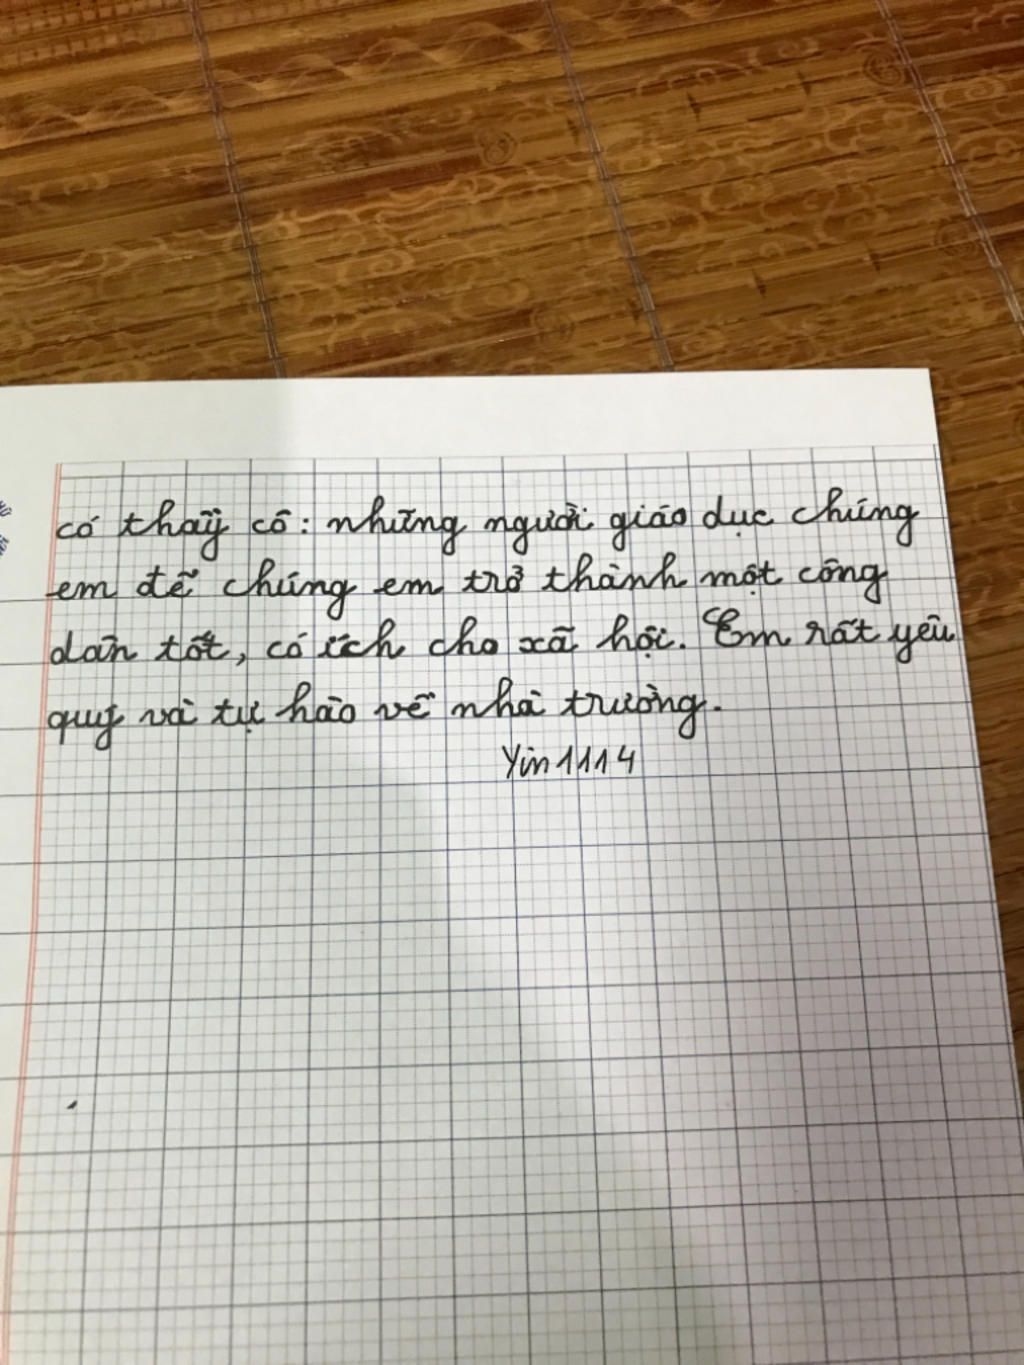 có thầy cô: những người giáo dục chúng
em để chúng em trở thành một công
dân tốt, có ích cho xã hội. Em rất yêu
quý và tự hào về nhà trường.
Yin1114